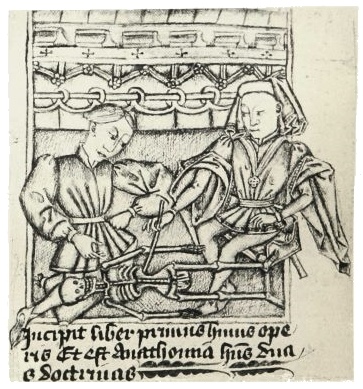 Incipit liber primus huius ope
ris Et est Anathomia h͞ns dua
s doctrinas